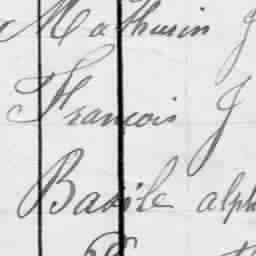 Mathurin J
François J
Basile alph